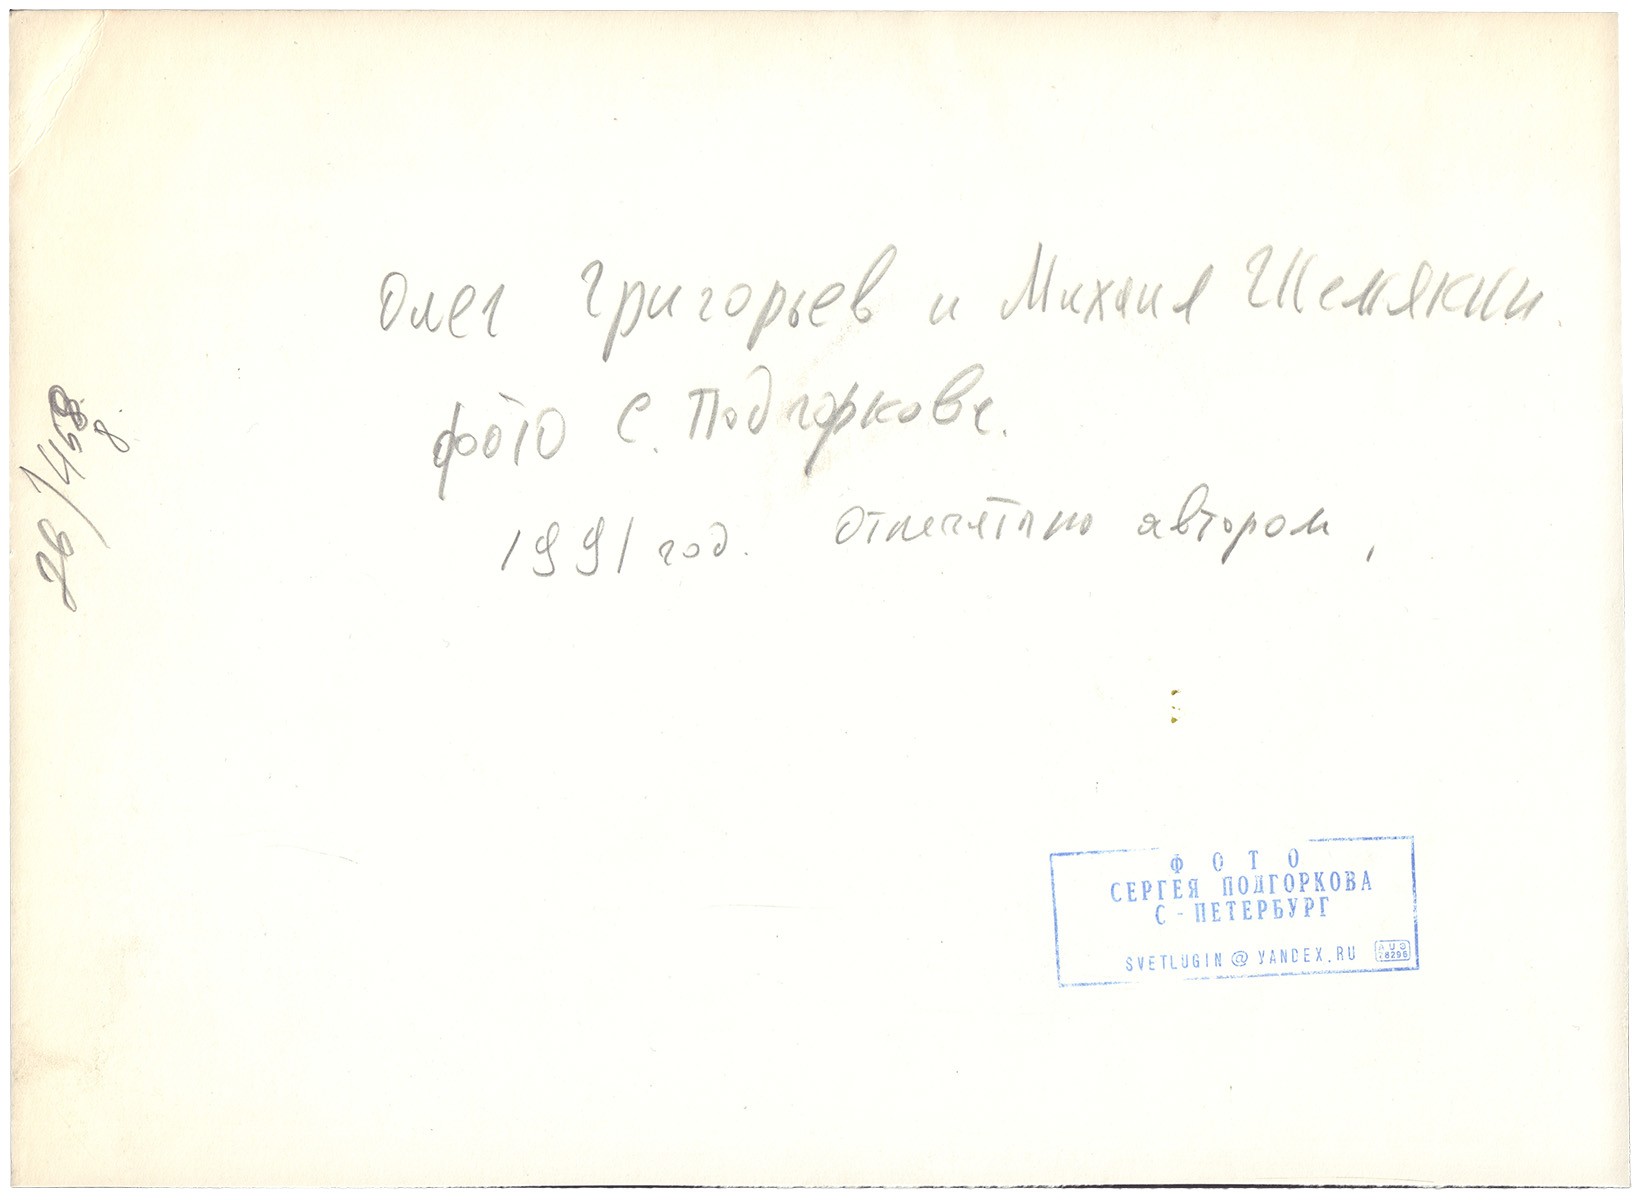 Олег Григорьев и Михаил Шемякин.
фото С. Подгоркова.
1991 год. Отпечатано автором,
ФОТО
СЕРГЕЯ ПОДГОРКОВА
С-ПЕТЕРБУРГ
SVETLUGIN@YANDEX.RU